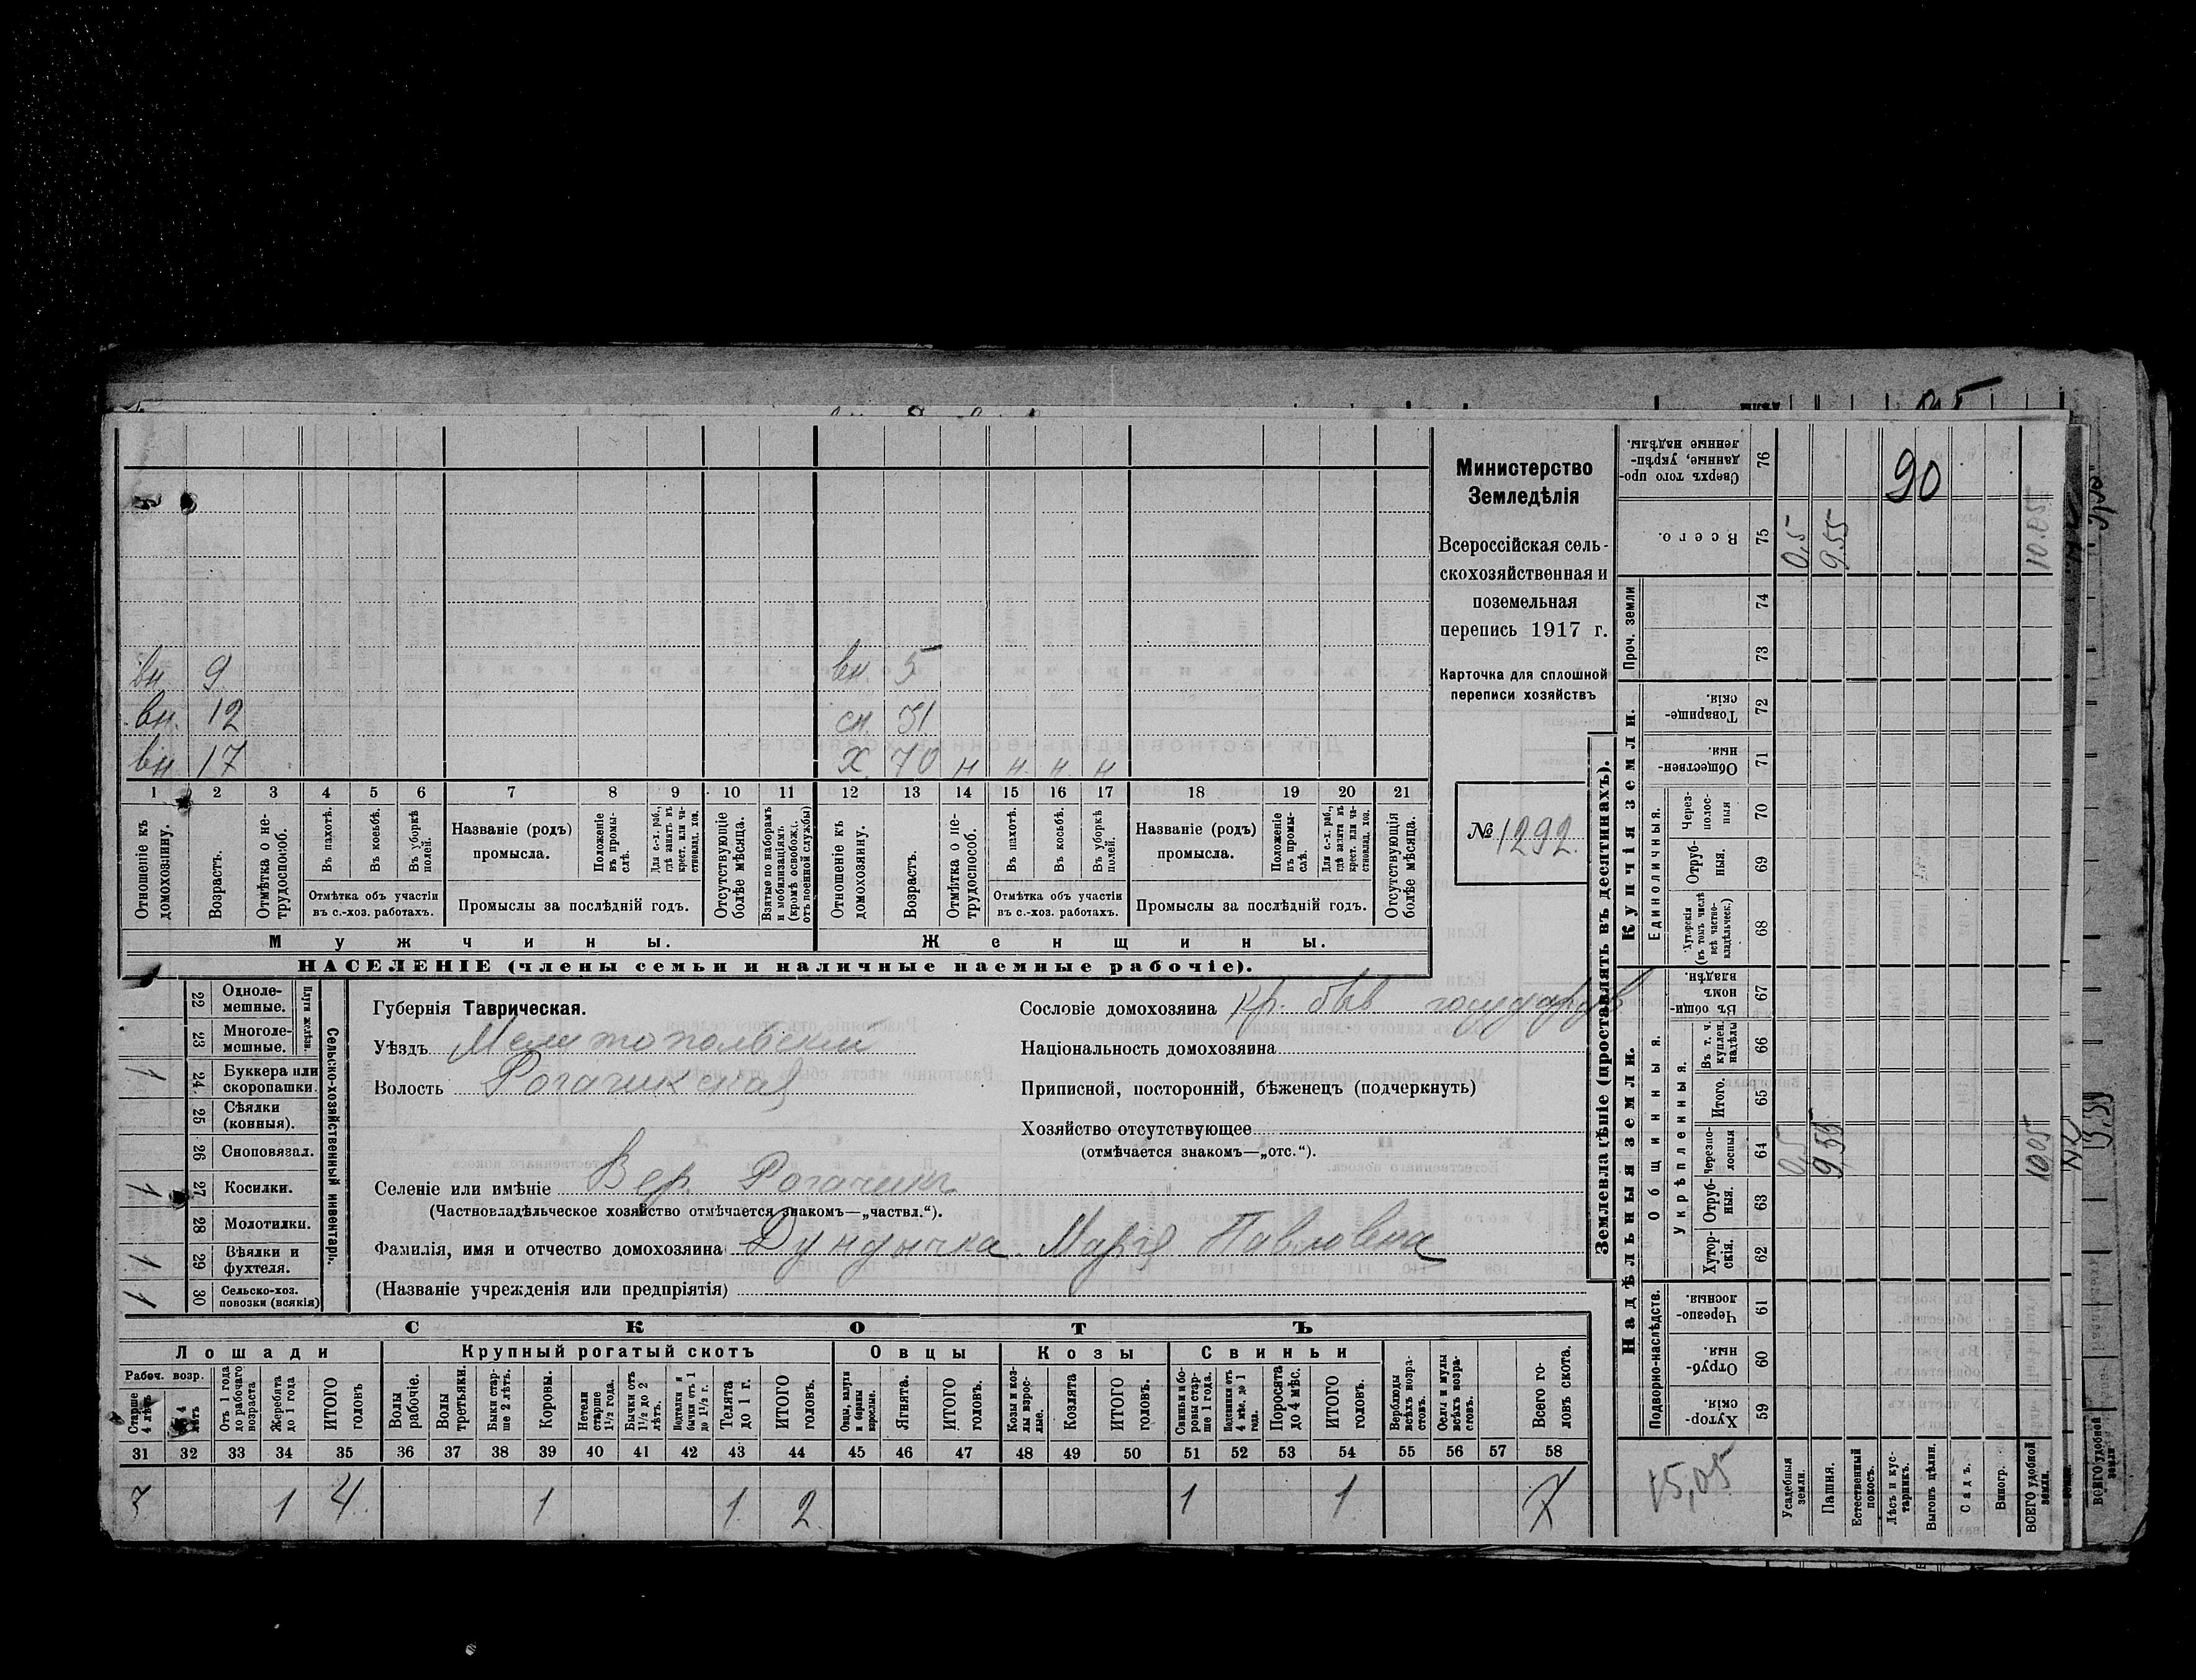 Министерство
Земледѣлія
Всероссійская сель-
скохозяйственная и
поземельная
перепись 1917 г.
Карточка для сплошной
переписи хозяйствъ
№ 1292
вн. 9
вн. 12
вн 17
вн. 5
сн. 51
Х 70 н н. н. н
1 2 3 4 5 6 7 8 9 10 11 12 13 14 15 16 17 18 19 20 21
Отношеніе къ домохозяину.
Возрастъ.
Отмѣтка о не-трудоспособ.
Въ пахотѣ.
Въ косьбѣ.
Въ уборкѣ полей.
Отмѣтка объ участіи
въ с.-хоз. работахъ.
Названіе (родъ)
промысла.
Положеніе въ промы-слѣ.
Для с.-х. раб., гдѣ занятъ въ крест. или ча-стновлад. хоз.
Промыслы за послѣдній годъ.
Отсутствующіе болѣе мѣсяца.
Взятые по наборамъ и мобилизаціямъ (кромѣ освобожд. отъ военной службы)
Отношеніе къ домохозяину.
Возрастъ.
Отмѣтка о не-трудоспособ.
Въ пахотѣ.
Въ косьбѣ.
Въ уборкѣ полей.
Отмѣтка объ участіи
въ с.-хоз. работахъ.
Названіе (родъ)
промысла.
Положеніе въ промы-слѣ.
Для с.-х. раб., гдѣ занята въ крест. или ча-стновлад. хоз.
Промыслы за послѣдній годъ.
Отсутствующія болѣе мѣсяца.
Мужчины.
Женщины.
НАСЕЛЕНІЕ (члены семьи и наличные наемные рабочіе).
Сельско-хозяйственный инвентарь.
Плуги желѣзн.
22 Одноле-мешные.
23 Многоле-мешные.
1 24 Буккера или скоропашки.
25 Сѣялки (конныя).
26 Сноповязал.
1 27 Косилки.
28 Молотилки.
1 29 Вѣялки и фухтеля.
1 30 Сельско-хоз. повозки (всякія)
Губернія Таврическая.
Уѣздъ Мелитопольскій
Волость Рогачикская
Селеніе или имѣніе Вер. Рогачикъ
(Частновладѣльческое хозяйство отмѣчается знакомъ—„частвл.“).
Фамилія, имя и отчество домохозяина Дундычка Марія Павловна
(Названіе учрежденія или предпріятія)
Сословіе домохозяина кр. быв государств
Національность домохозяина
Приписной, посторонній, бѣженецъ (подчеркнуть)
Хозяйство отсутствующее
(отмѣчается знакомъ—„отс.“).
СКОТЪ
Лошади
Крупный рогатый скотъ
Овцы
Козы
Свиньи
Рабоч. возр.
Старше 4 лѣтъ
До 4 лѣтъ
Отъ 1 года до рабочаго возраста
Жеребята до 1 года
ИТОГО головъ
Волы рабочіе.
Волы третьяки.
Быки стар-ше 2 лѣтъ.
Коровы.
Нетели старше 1½ года.
Бычки отъ 1½ до 2 лѣтъ.
Подтелки и бычки отъ 1 до 1½ г.
Телята до 1 г.
ИТОГО головъ.
Овцы, валухи и бараны взрослые.
Ягнята.
ИТОГО головъ.
Козы и коз-лы взрос-лые.
Козлята
ИТОГО головъ.
Свиньи и бо-ровы стар-ше 1 года.
Подсвинки отъ 4 мѣс. до 1 года.
Поросята до 4 мѣс.
ИТОГО головъ.
Верблюды всѣхъ возра-стовъ.
Ослы и мулы всѣхъ возра-стовъ.
Всего го-ловъ скота.
31 32 33 34 35 36 37 38 39 40 41 42 43 44 45 46 47 48 49 50 51 52 53 54 55 56 57 58
3 1 4 1 1 2 1 1 7
Землевладѣніе (проставлять въ десятинахъ).
Надѣльныя земли.
Купчія земли.
Проч. земли
Подворно-наслѣдств.
Общинныя.
Укрѣпленныя.
Единоличныя.
76 Сверхъ того про-данные, укрѣп-ленные надѣлы.
75 Всего.
74
73
72 Товарище-скія.
71 Обществен-ныя.
70 Через-полос-ныя
69 Отруб-ныя.
68 Хуторскія (въ томъ числѣ всѣ частно-владѣльческ.)
67 Въ общи-номъ владѣн.
66 Въ т. ч. куплен. надѣлы
65 Итого.
64 Черезпо-лосныя
63 Отруб-ныя.
62 Хутор-скія.
61 Черезпо-лосныя.
60 Отруб-ныя.
59 Хутор-скія.
90
0,5 9.55 10.05
0,5 9,55 10.05
15,05
Усадебныя земли.
Пашня.
Естественный покосъ.
Лѣсъ и кус-тарникъ.
Выгонъ цѣлин.
Садъ.
Виногр.
ВСЕГО удобной земли.
ВСЕГО удобной земли